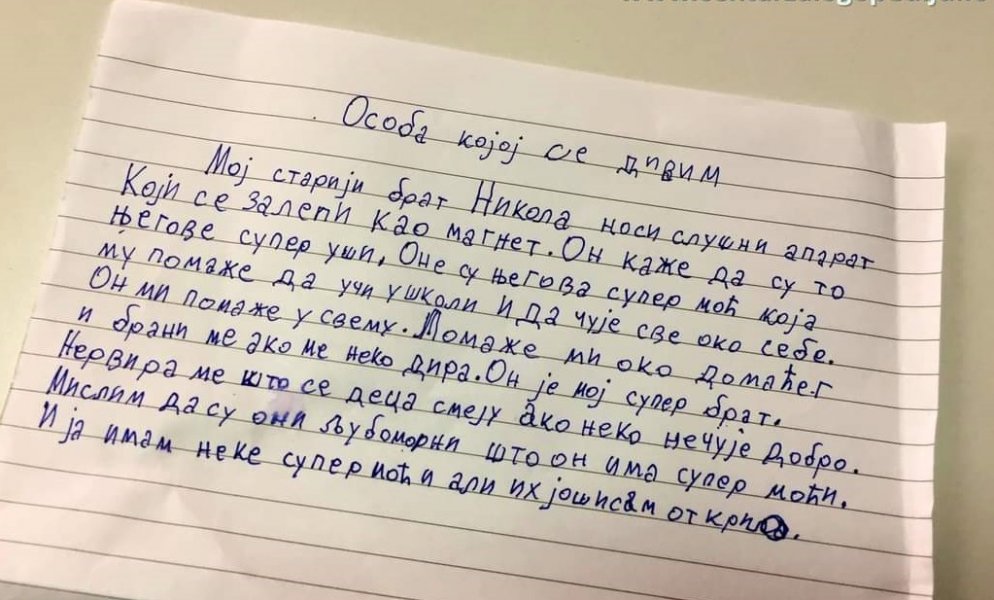 Особа којој се дивим
Мој старији брат Никола носи слушни апарат
Који се залепи као магнет. Он каже да су то
његове супер уши. Оне су његова супер моћ која
му помаже да учи ушколи и да чује све око себе.
Он ми помаже у свему. Помаже ми око домаћег
и брани ме ако ме неко дира. Он је мој супер брат.
Нервира ме што се деца смеју ако неко нечује добро.
Мислим дасу они љубоморни што он има супер моћи.
И ја имам неке супер моћи али их јошисам